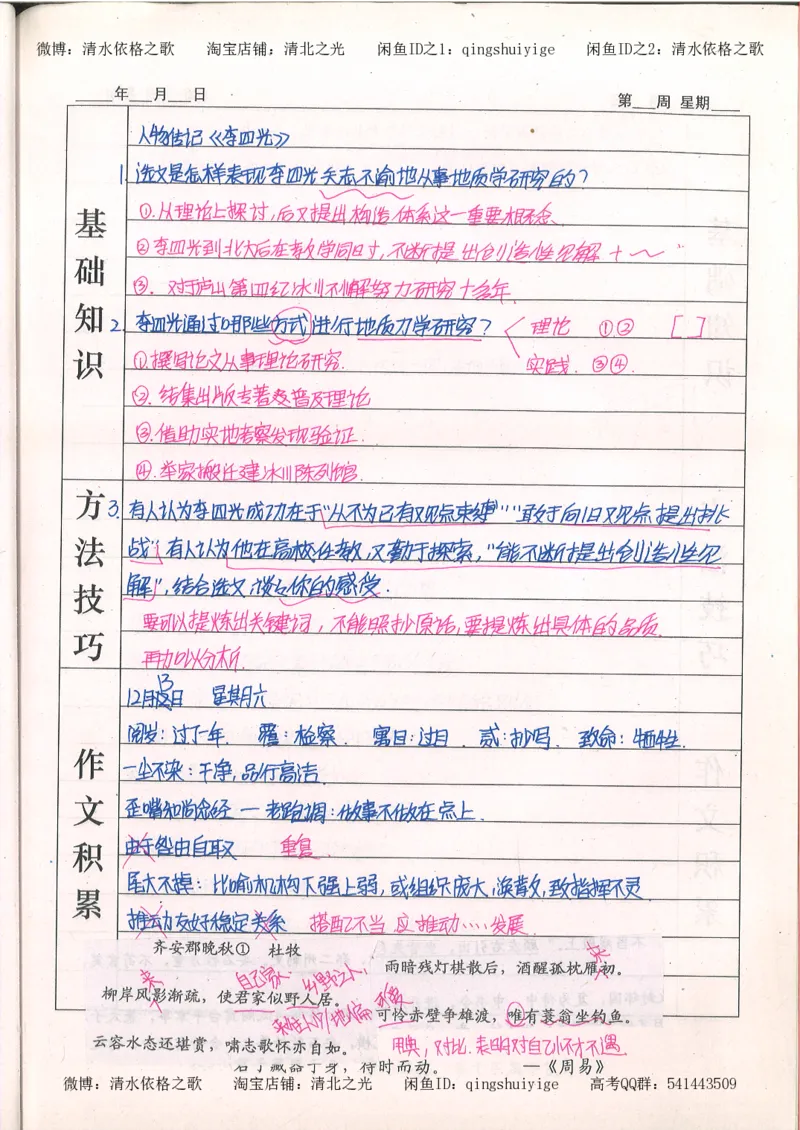 微博：清水依格之歌 淘宝店铺：清北之光 闲鱼ID之1：qingshuiyige 闲鱼ID之2：清水依格之歌
____年___月___日 第___周 星期____
基础知识
人物传记《李四光》
1. 选文是怎样表现李四光矢志不渝地从事地质学研究的？
①.从理论上探讨，后又提出构造体系这一重要概念.
②李四光到北大后在教学同时，不断提出创造性见解 + ～
③. 对庐山第四纪冰川不懈努力研究十多年.
2. 李四光通过哪些方式进行地质力学研究？ 理论 ①② [ ]
①撰写论文从事理论研究. 实践. ③④.
②. 结集出版专著普及理论
③.借助实地考察发现验证.
④.举家搬迁建冰川陈列馆.
方法技巧
3. 有人认为李四光成功在于“从不为已有观点束缚”“敢于向旧观点提出挑
战”，有人认为他在高校任教，又勤于探索，“能不断提出创造性见
解”，结合选文，谈谈你的感受.
要可以提炼出关键词，不能照抄原话，要提炼出具体的品质.
再加以分析.
作文积累
12月13日 星期六
阅岁：过了一年. 覆：检察. 寓目：过目. 贰：抄写. 致命：牺牲.
一尘不染：干净，品行高洁.
歪嘴和尚念经 — 老跑调：做事不做在点上.
由于咎由自取 重复.
尾大不掉：比喻机构下强上弱，或组织庞大，涣散，致指挥不灵.
推动友好稳定关系 搭配不当 应推动……发展.
齐安郡晚秋① 杜牧
柳岸风影渐疏，使君家似野人居。
云容水态还堪赏，啸志歌怀亦自如。
雨暗残灯棋散后，酒醒孤枕雁初。
来
自己家
出野之人
来
可怜赤壁争雄渡，唯有蓑翁坐钓鱼。
用典，对比.表明对自己怀才不遇.
君子藏器于身，待时而动。 —《周易》
微博：清水依格之歌 淘宝店铺：清北之光 闲鱼ID：qingshuiyige 高考QQ群：541443509